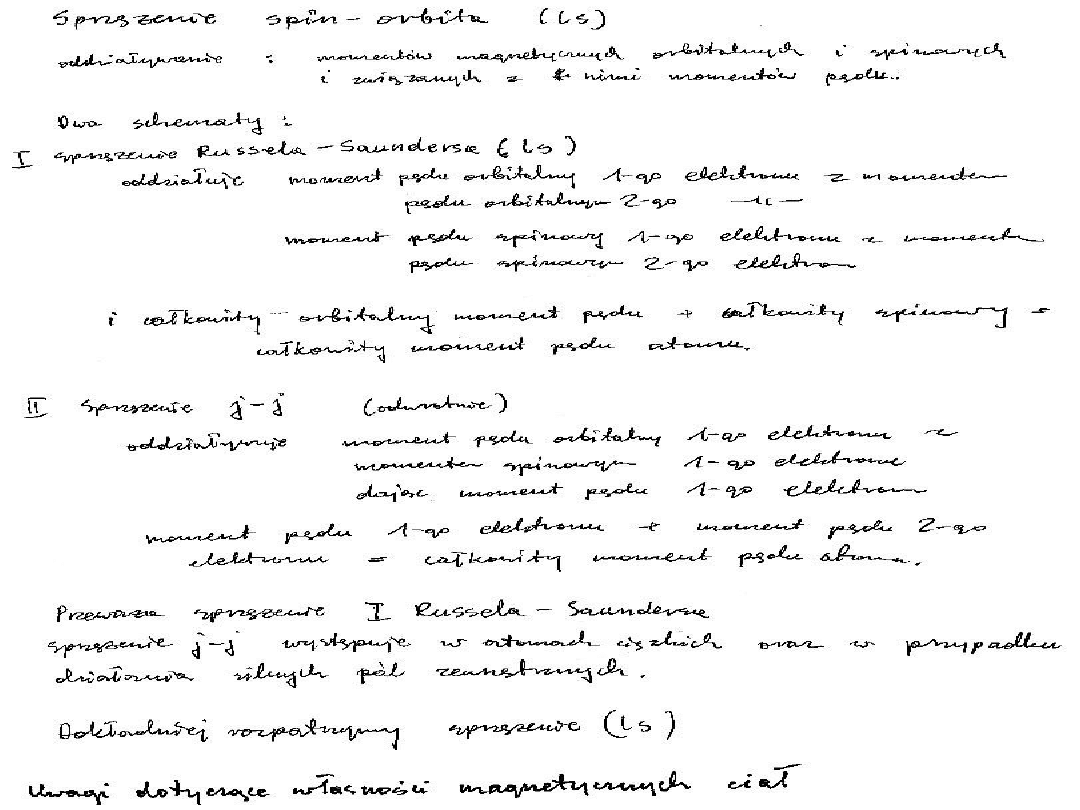 Sprzężenie spin-orbita (LS)
oddziaływanie : momentów magnetycznych orbitalnych i spinowych
i związanych z nimi momentów pędu..
Dwa schematy :
I sprzężenie Russela - Saundersa (LS)
oddziałuje moment pędu orbitalny 1-go elektronu z momentem
pędu orbitalnym 2-go —"—
moment pędu spinowy 1-go elektronu z momentem
pędu spinowym 2-go elektronu
i całkowity orbitalny moment pędu + całkowity spinowy =
całkowity moment pędu atomu.
II sprzężenie j-j (odwrotnie)
oddziaływuje moment pędu orbitalny 1-go elektronu z
momentem spinowym 1-go elektronu
dając moment pędu 1-go elektronu
moment pędu 1-go elektronu + moment pędu 2-go
elektronu = całkowity moment pędu atomu.
Przeważa sprzężenie I Russela - Saundersa
sprzężenie j-j występuje w atomach ciężkich oraz w przypadku
działania silnych pól zewnętrznych.
Dokładniej rozpatrzymy sprzężenie (LS)
Uwagi dotyczące własności magnetycznych ciał